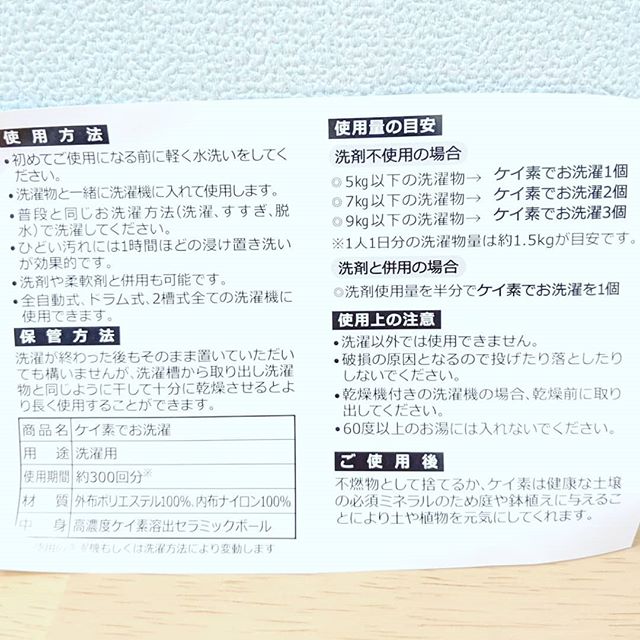 使用方法
・初めてご使用になる前に軽く水洗いをしてく
ださい。
・洗濯物と一緒に洗濯機に入れて使用します。
・普段と同じお洗濯方法(洗濯、すすぎ、脱
水)で洗濯してください。
・ひどい汚れには1時間ほどの浸け置き洗い
が効果的です。
・洗剤や柔軟剤と併用も可能です。
・全自動式、ドラム式、2槽式全ての洗濯機に
使用できます。
保管方法
洗濯が終わった後もそのまま置いていただい
ても構いませんが、洗濯槽から取り出し洗濯
物と同じように干して十分に乾燥させるとよ
り長く使用することができます。
商品名 ケイ素でお洗濯
用途 洗濯用
使用期間 約300回分※
材質 外布ポリエステル100%、内布ナイロン100%
中身 高濃度ケイ素溶出セラミックボール
洗濯機もしくは洗濯方法により変動します
使用量の目安
洗剤不使用の場合
◎5kg以下の洗濯物→ ケイ素でお洗濯1個
◎7kg以下の洗濯物→ ケイ素でお洗濯2個
◎9kg以下の洗濯物→ ケイ素でお洗濯3個
※1人1日分の洗濯物量は約1.5kgが目安です。
洗剤と併用の場合
◎洗剤使用量を半分でケイ素でお洗濯を1個
使用上の注意
・洗濯以外では使用できません。
・破損の原因となるので投げたり落としたり
しないでください。
・乾燥機付きの洗濯機の場合、乾燥前に取り
出してください。
・60度以上のお湯には入れないでください。
ご使用後
不燃物として捨てるか、ケイ素は健康な土壌
の必須ミネラルのため庭や鉢植えに与えるこ
とにより土や植物を元気にしてくれます。